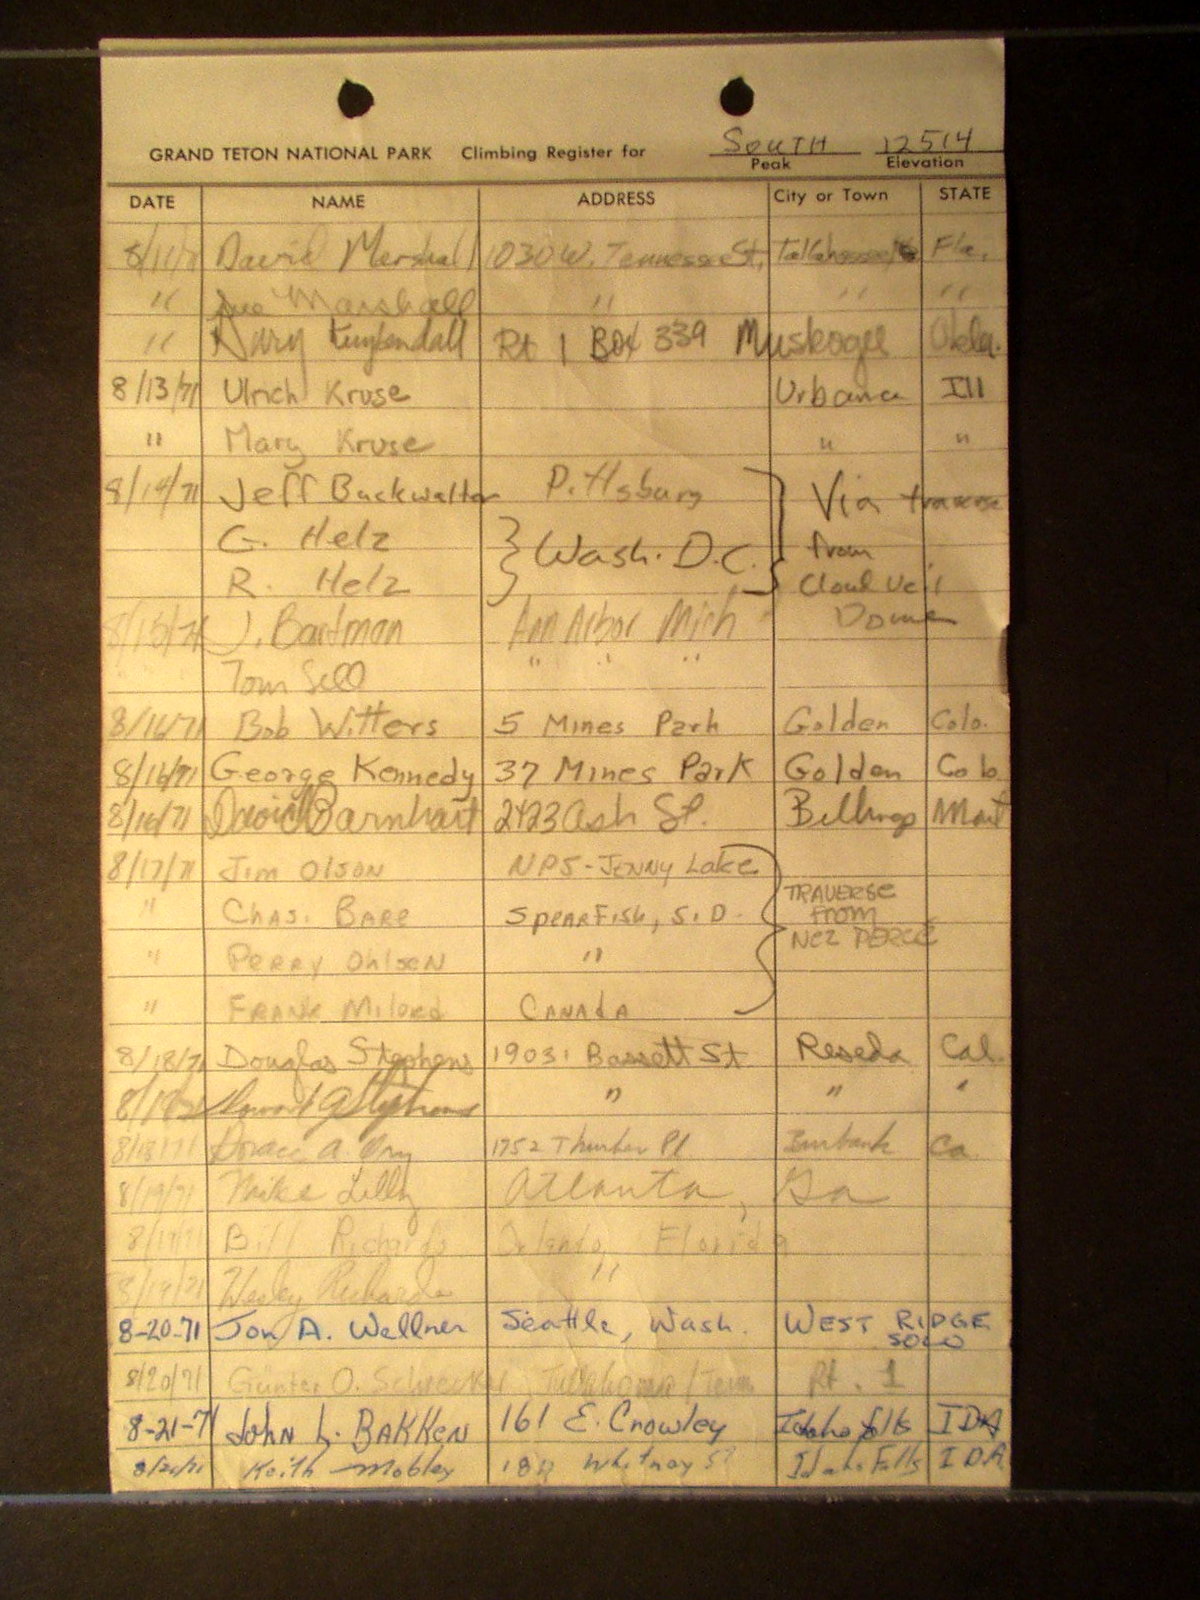 SOUTH 12514
GRAND TETON NATIONAL PARK Climbing Register for Peak Elevation
DATE NAME ADDRESS City or Town STATE
8/11/71 David Marshall 1030 W. Tennessee St. Tallahassee Fla.
" Sue Marshall " " "
" Kuykendall Rt 1 Box 339 Muskogee Okla.
8/13/71 Ulrich Kruse Urbana Ill
" Mary Kruse " "
8/14/71 Jeff Buckwalter Pittsburg Via traverse
G. Helz Wash. D.C. from
R. Helz Cloud Veil
Dome
8/15/71 J. Bartman Ann Arbor Mich
Tom Sell " " "
8/16/71 Bob Witters 5 Mines Park Golden Colo.
8/16/71 George Kennedy 37 Mines Park Golden Colo
8/16/71 David Barnhart 2423 Ash St. Billings Mont
8/17/71 Jim Olson NPS-Jenny Lake TRAVERSE
" Chas. Bare Spearfish, S.D. from
" Perry Ohlson " NEZ PERCE
" Frank Milord Canada
8/18/71 Douglas Stephens 19031 Bassett St Reseda Cal.
8/18/71 Stephens " " "
8/18/71 A. 1752 Pl Burbank Ca
8/19/71 Mike Lilly Atlanta, Ga
8/19/71 Bill Richards Orlando, Florida
8/19/71 Wesley Richards "
8-20-71 Jon A. Wellner Seattle, Wash. WEST RIDGE
SOLO
8/20/71 Gunter O. Tullahoma/Tenn Rt. 1
8-21-71 John L. BAKKEN 161 E. Crowley Idaho falls IDA
8/21/71 Keith Mobley Whitney St Idaho Falls IDA